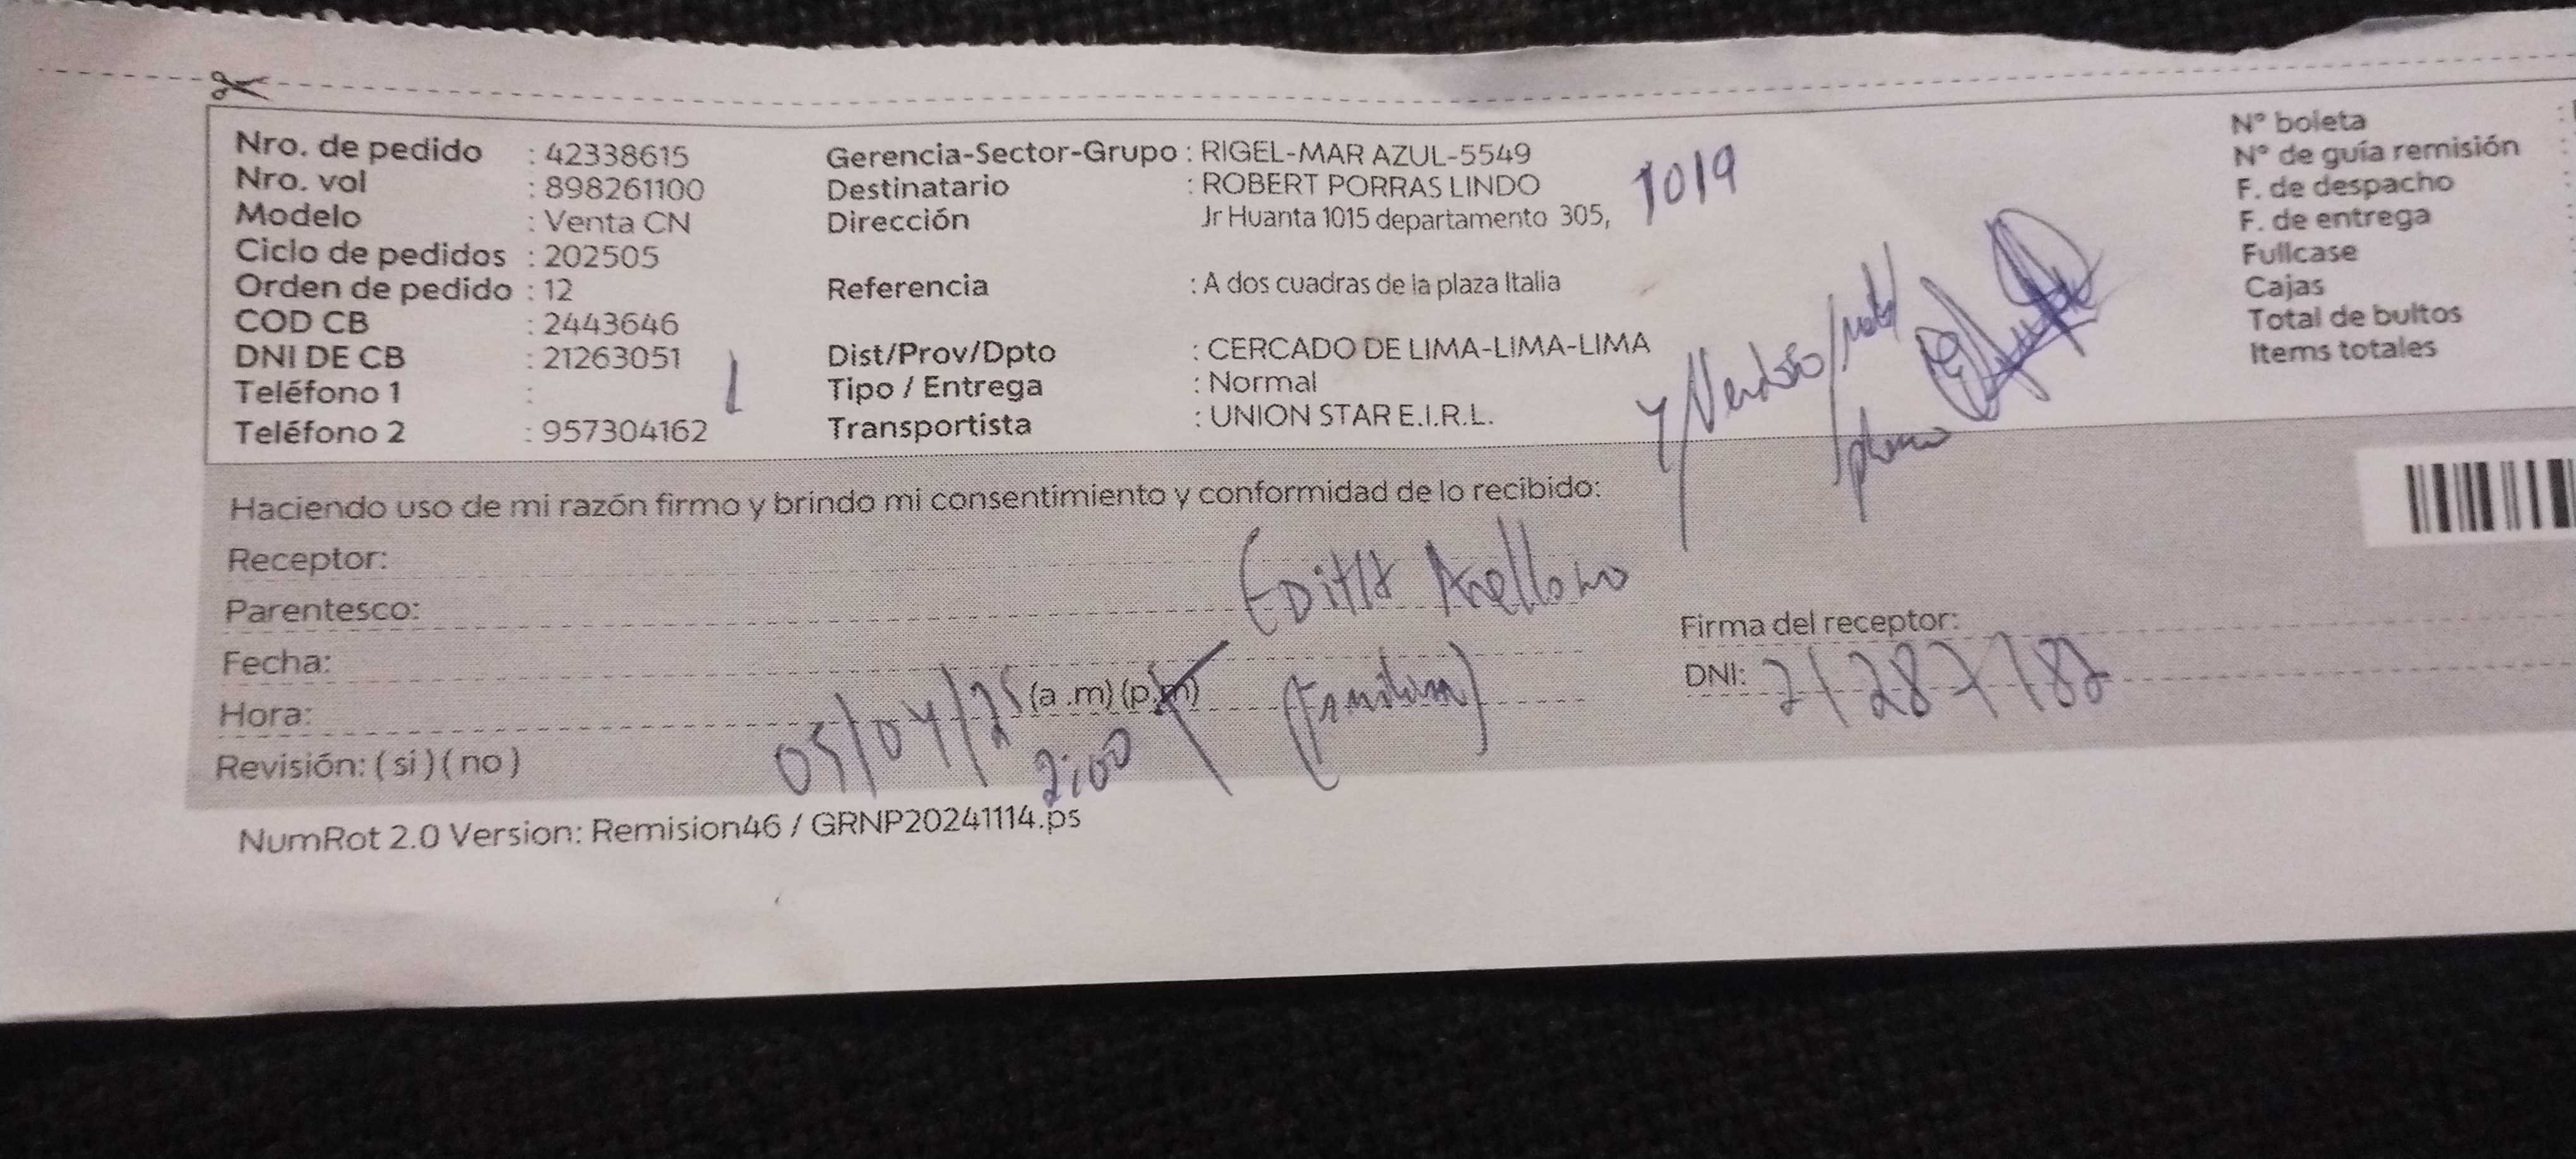 Nro. de pedido : 42338615
Nro. vol : 898261100
Modelo : Venta CN
Ciclo de pedidos : 202505
Orden de pedido : 12
COD CB : 2443646
DNI DE CB : 21263051
Teléfono 1 :
Teléfono 2 : 957304162
Gerencia-Sector-Grupo : RIGEL-MAR AZUL-5549
Destinatario : ROBERT PORRAS LINDO
Dirección Jr Huanta 1015 departamento 305,
1019
Referencia : A dos cuadras de la plaza Italia
Dist/Prov/Dpto : CERCADO DE LIMA-LIMA-LIMA
Tipo / Entrega : Normal
Transportista : UNION STAR E.I.R.L.
Nº boleta :
Nº de guía remisión :
F. de despacho :
F. de entrega
Fullcase
Cajas
Total de bultos
Items totales
Haciendo uso de mi razón firmo y brindo mi consentimiento y conformidad de lo recibido:
Receptor:
Edith Arellano
Parentesco:
(Familiar)
Fecha:
05/04/25
Hora: (a .m) (p.m)
2:00
Revisión: ( si ) ( no )
Firma del receptor:
DNI: 21287182
NumRot 2.0 Version: Remision46 / GRNP20241114.ps